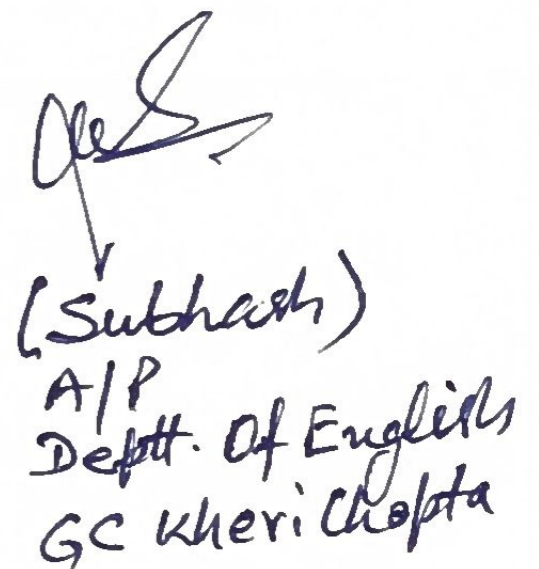 (Subhash)
A/P
Deptt. Of English
GC Kheri Chopta